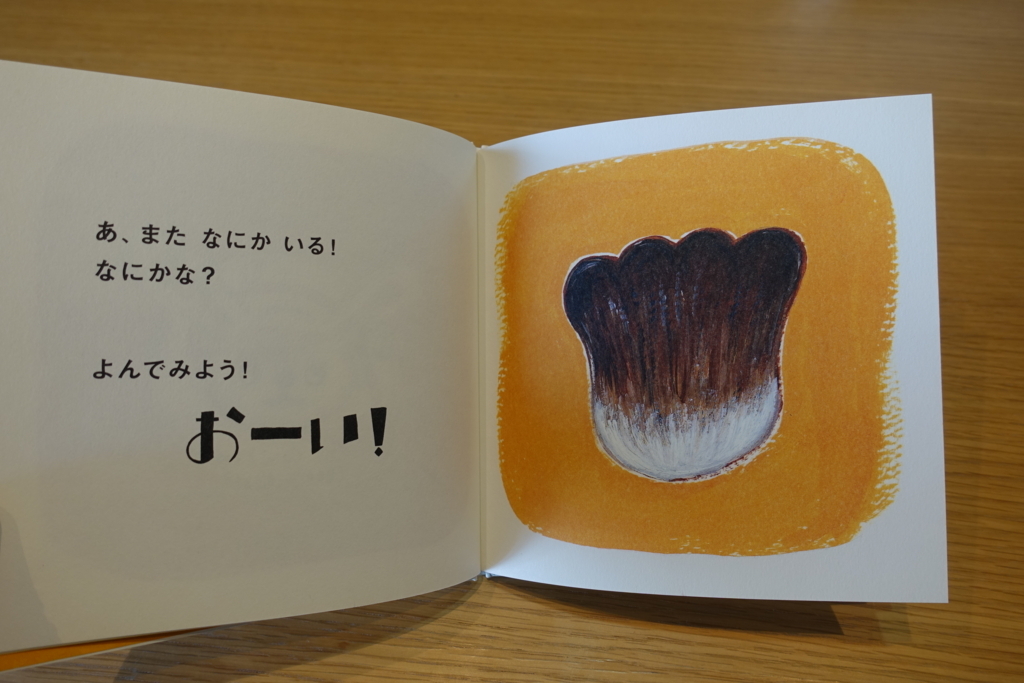 あ、また なにか いる!
なにかな?
よんでみよう!
おーい!